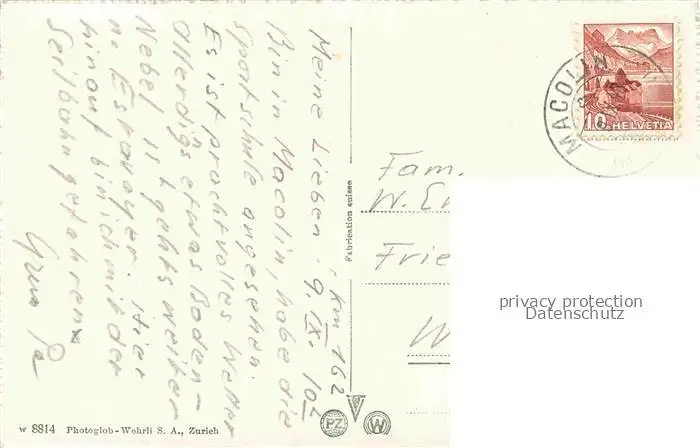 Meine Lieben. 9. IX. 10²
1 km 162
Bin in Macolin, habe die
Sportschule angesehen.
Es ist prachtvolles Wetter
Allerdigs etwas Boden-
Nebel. Hier
geht's weiter
n. Estavayer.
hinauf bin ich mit der
Seilbahn gefahren
Gruss Pa
Fabrication suisse
Fam.
W.
Frie
W
MACOLIN
10 HELVETIA
privacy protection
Datenschutz
PZ W
W 8814 Photoglob-Wehrli S. A., Zurich